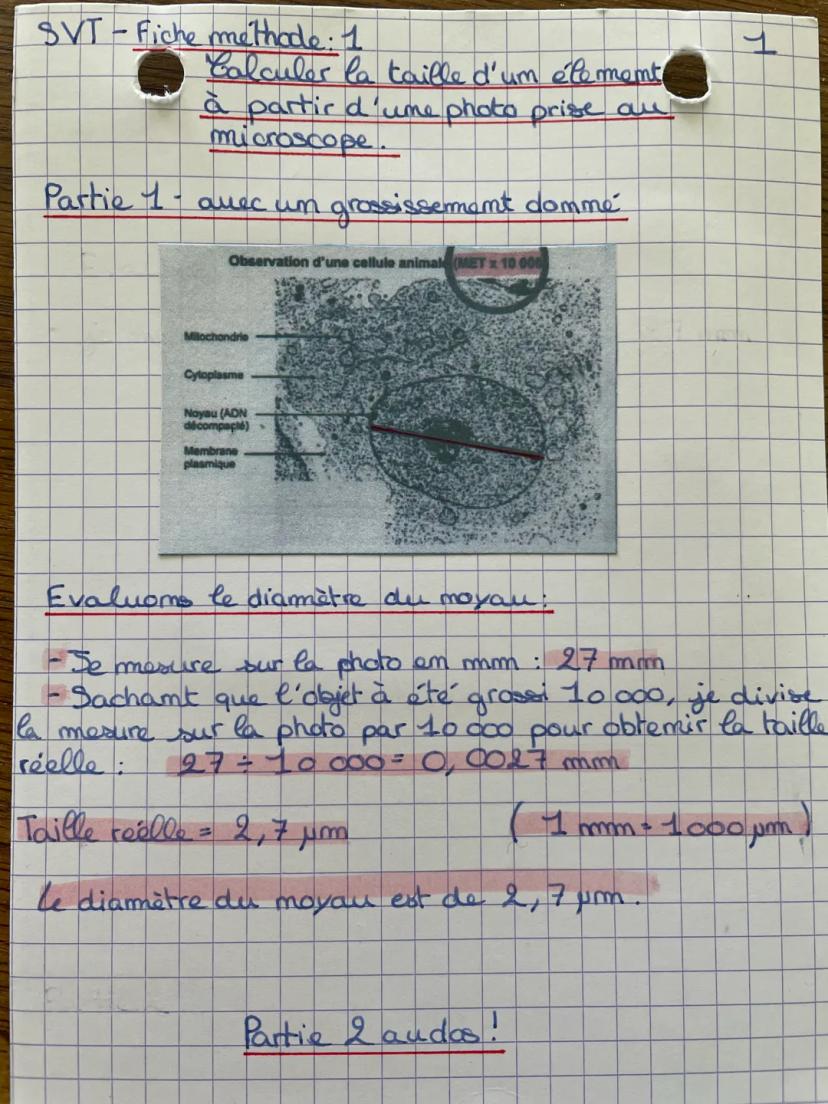 SVT - Fiche méthode : 1
1
Calculer la taille d'un élément
à partir d'une photo prise au
microscope.
Partie 1 - avec un grossissement donné
Observation d'une cellule animale (MET x 10 000
Mitochondrie
Cytoplasme
Noyau (ADN
décompacté)
Membrane
plasmique
Evaluons le diamètre du noyau :
- Je mesure sur la photo en mm : 27 mm
- Sachant que l'objet à été grossi 10 000, je divise
la mesure sur la photo par 10 000 pour obtenir la taille
réelle : 27 ÷ 10 000 = 0,0027 mm
Taille réelle = 2,7 µm ( 1 mm = 1000 µm )
Le diamètre du noyau est de 2,7 µm.
Partie 2 au dos !